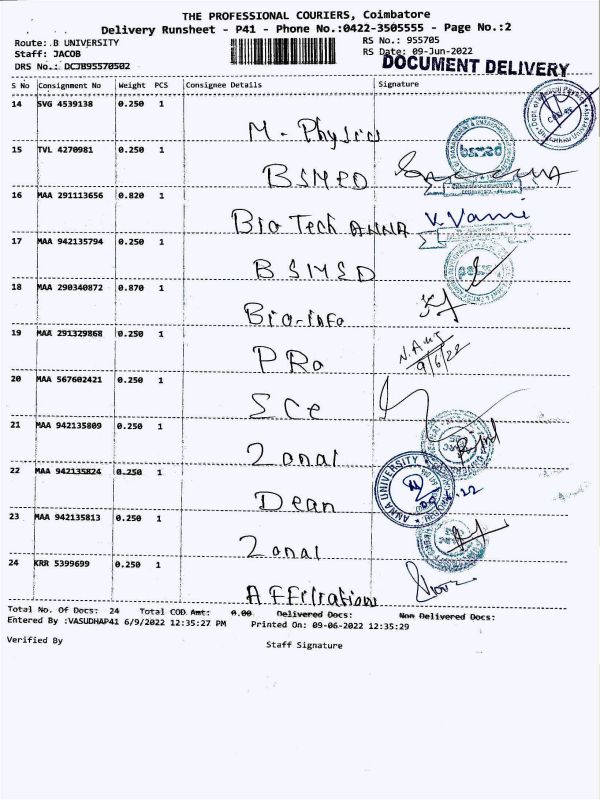 THE PROFESSIONAL COURIERS, Coimbatore
Delivery Runsheet - P41 - Phone No.:0422-3505555 - Page No.:2
Route: B UNIVERSITY RS No.: 955705
Staff: JACOB RS Date: 09-Jun-2022
DRS No.: DCJB95570502 DOCUMENT DELIVERY
S No Consignment No Weight PCS Consignee Details Signature
14 SVG 4539138 0.250 1
M - Physics
15 TVL 4270981 0.250 1
bsmed
BSMED
16 MAA 291113656 0.820 1
Bio Tech ANNA V. Vani
17 MAA 942135794 0.250 1
BSMSD
18 MAA 290340872 0.870 1
Bio-info
19 MAA 291329868 0.250 1
PRo
9/6/22
20 MAA 567602421 0.250 1
SCe
21 MAA 942135809 0.250 1
Zonal
22 MAA 942135824 0.250 1
ANNA UNIVERSITY
Dean
23 MAA 942135813 0.250 1
Zonal
24 KRR 5399699 0.250 1
AFFilration
Total No. Of Docs: 24 Total COD Amt: 0.00 Delivered Docs: Non Delivered Docs:
Entered By :VASUDHAP41 6/9/2022 12:35:27 PM Printed On: 09-06-2022 12:35:29
Verified By Staff Signature